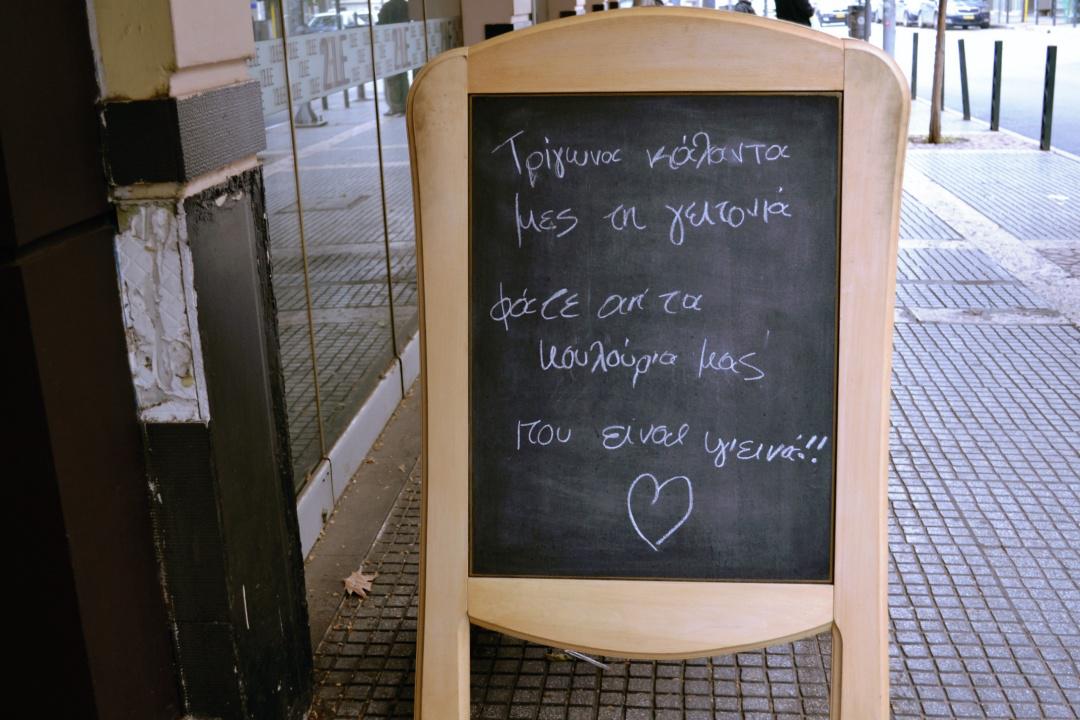 Τρίγωνα κάλαντα
μες τη γειτονιά
φάτε απ τα
κουλούρια μας
που είναι υγιεινά!!